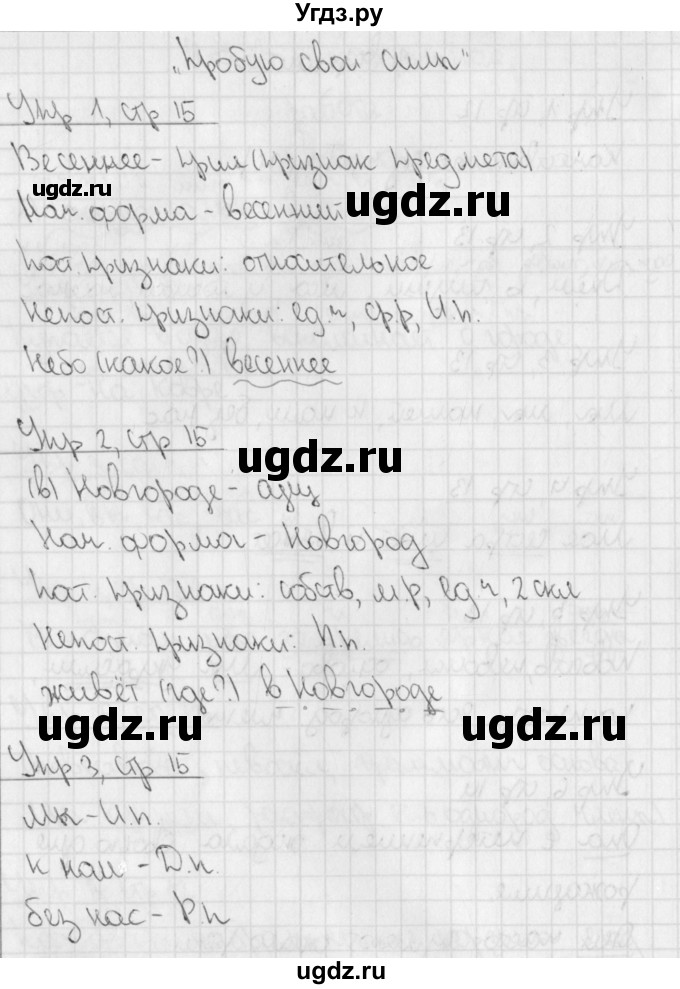 Угдз.ру
„Пробую свои силы"
Упр 1, стр 15
Весеннее - прил (признак предмета)
ugdz.ru ugdz.ru
Нач. форма - весенний
Пост. признаки: относительное
Непост. признаки: ед.ч, ср.р, И.п.
Небо (какое?) весеннее
Упр 2, стр 15
ugdz.ru
(в) Новгороде - сущ
Нач. форма - Новгород
Пост. признаки: собств, м.р, ед.ч, 2 скл
Непост. признаки: П.п.
живёт (где?) в Новгороде
ugdz.ru ugdz.ru
Упр 3, стр 15
Мы - И.п.
к нам - Д.п.
без нас - Р.п
ugdz.ru